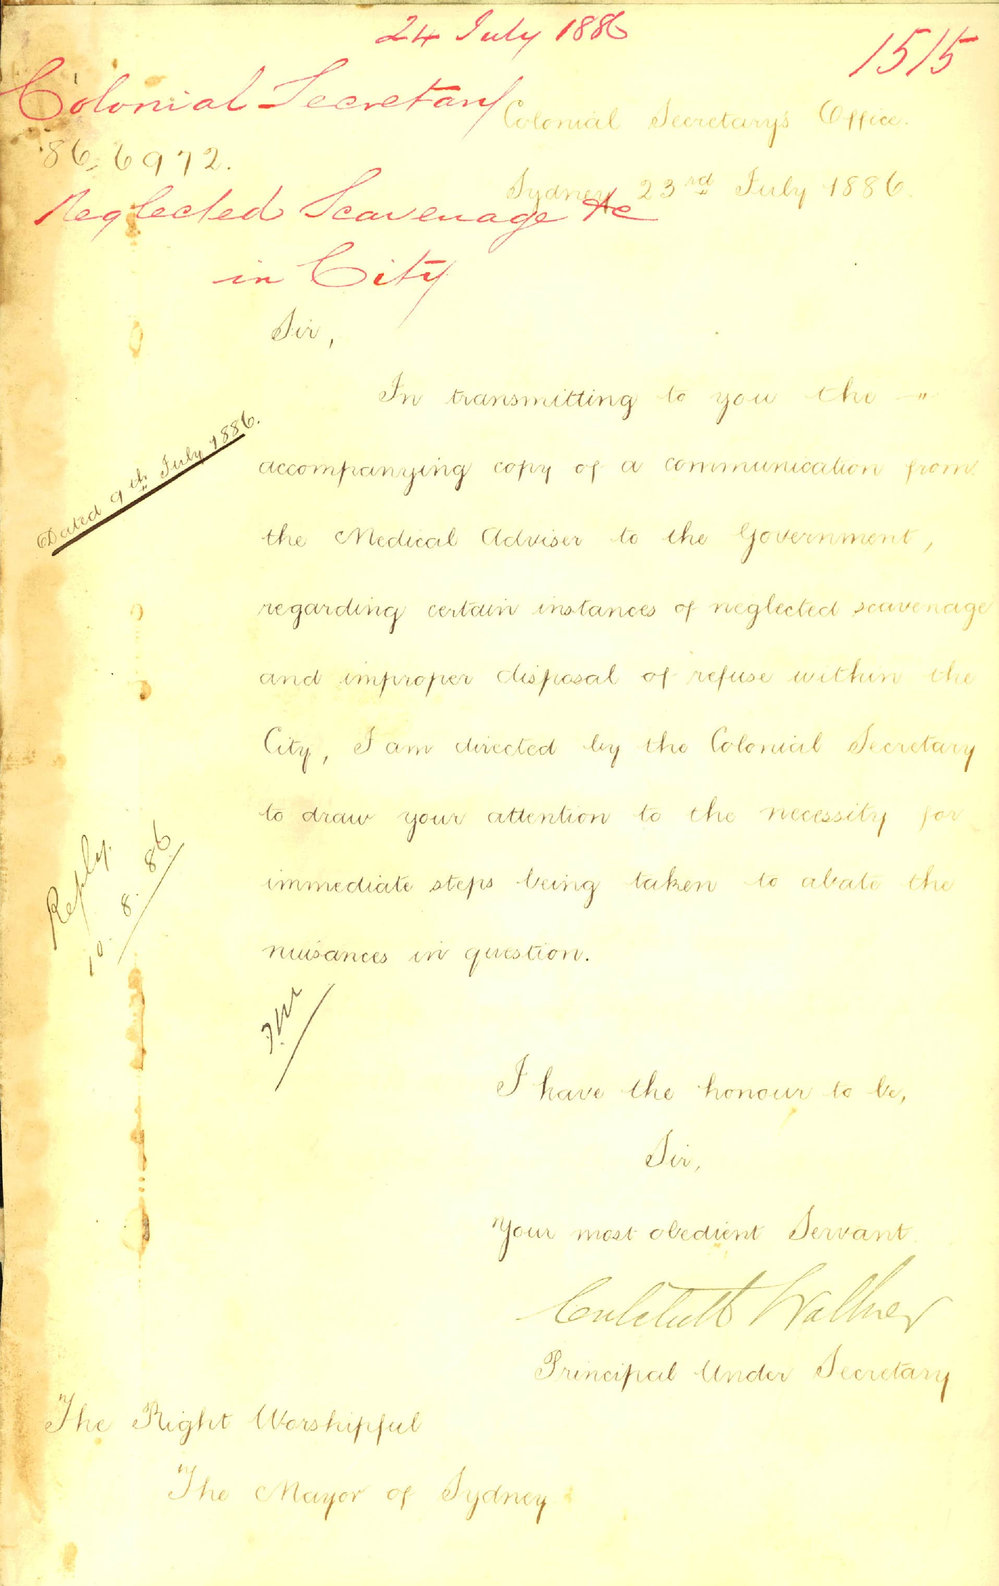 24 July 1886
1515
Colonial Secretary
Colonial Secretary's Office.
86,6972.
Sydney 23rd July 1886.
Neglected Scavenage &c
in City
Sir,
In transmitting to you the
Dated 9th July 1886.
accompanying copy of a communication from
the Medical Adviser to the Government,
regarding certain instances of neglected scavenage
and improper disposal of refuse within the
City, I am directed by the Colonial Secretary
to draw your attention to the necessity for
immediate steps being taken to abate the
nuisances in question.
Reply.
10.8.86
I have the honour to be,
Sir,
Your most obedient Servant.
Critchett Walker
Principal Under Secretary
The Right Worshipful
The Mayor of Sydney